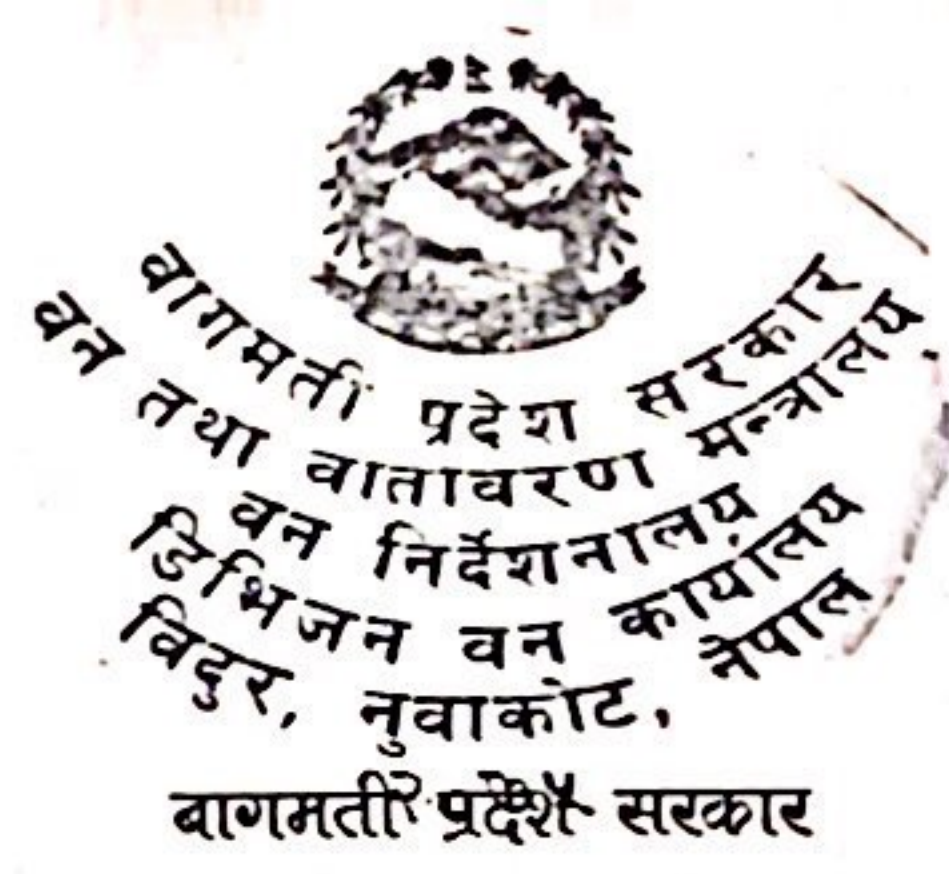 वागमती प्रदेश सरकार
वन तथा वातावरण मन्त्रालय
वन निर्देशनालय
डिभिजन वन कार्यालय
विदुर, नुवाकोट, नेपाल
बागमती प्रदेश सरकार